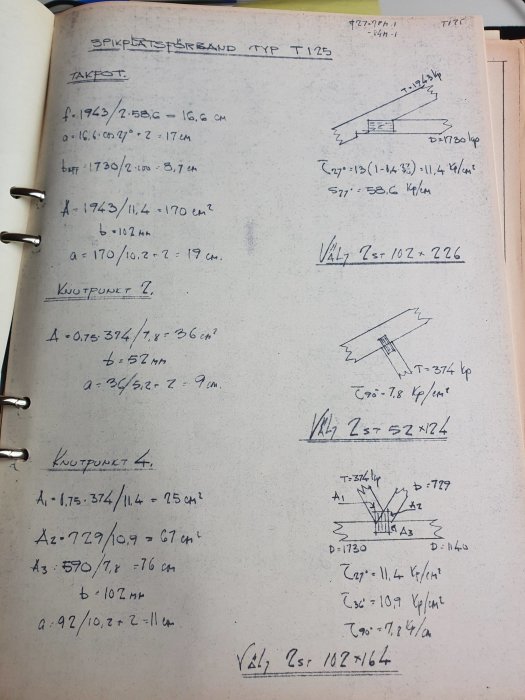 T125
SPIKPLÅTSFÖRBAND TYP T125
TAKFOT.
f = 1943/2·58,6 = 16,6 cm
a = 16,6·cos 27° + 2 = 17 cm
1730/2·100 = 8,7 cm
A = 1943/11,4 = 170 cm²
b = 102 mm
a = 170/10,2 + 2 = 19 cm.
T=1943 kp
D=1730 kp
τ27° = 13 (1-0,4 27/90) = 11,4 kp/cm²
S27° = 58,6 kp/cm
VÄLJ 2 ST 102 × 226
KNUTPUNKT 2.
A = 0,75·374/7,8 = 36 cm²
b = 52 mm
a = 36/5,2 + 2 = 9 cm.
T=374 kp
τ90° = 7,8 kp/cm²
VÄLJ 2 ST 52 × 124
KNUTPUNKT 4.
A1 = 0,75·374/11,4 = 25 cm²
A2 = 729/10,9 = 67 cm²
A3 = 590/7,8 = 76 cm
b = 102 mm
a = 92/10,2 + 2 = 11 cm
T=374 kp
D=729
A1
A2
A3
D=1730
D=1140
τ27° = 11,4 kp/cm²
τ36° = 10,9 kp/cm²
τ90° = 7,8 kp/cm
VÄLJ 2 ST 102 × 164